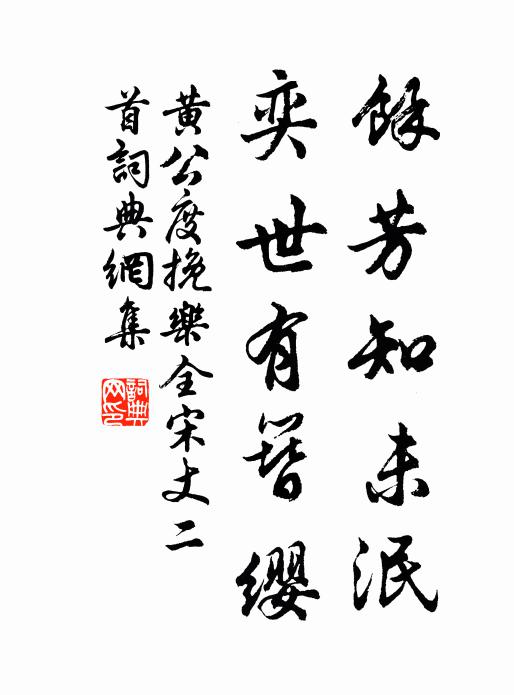 餘芳知未泯
奕世有簪纓
黄公度挽樂全宋丈二
首詞典網集
詞典网印